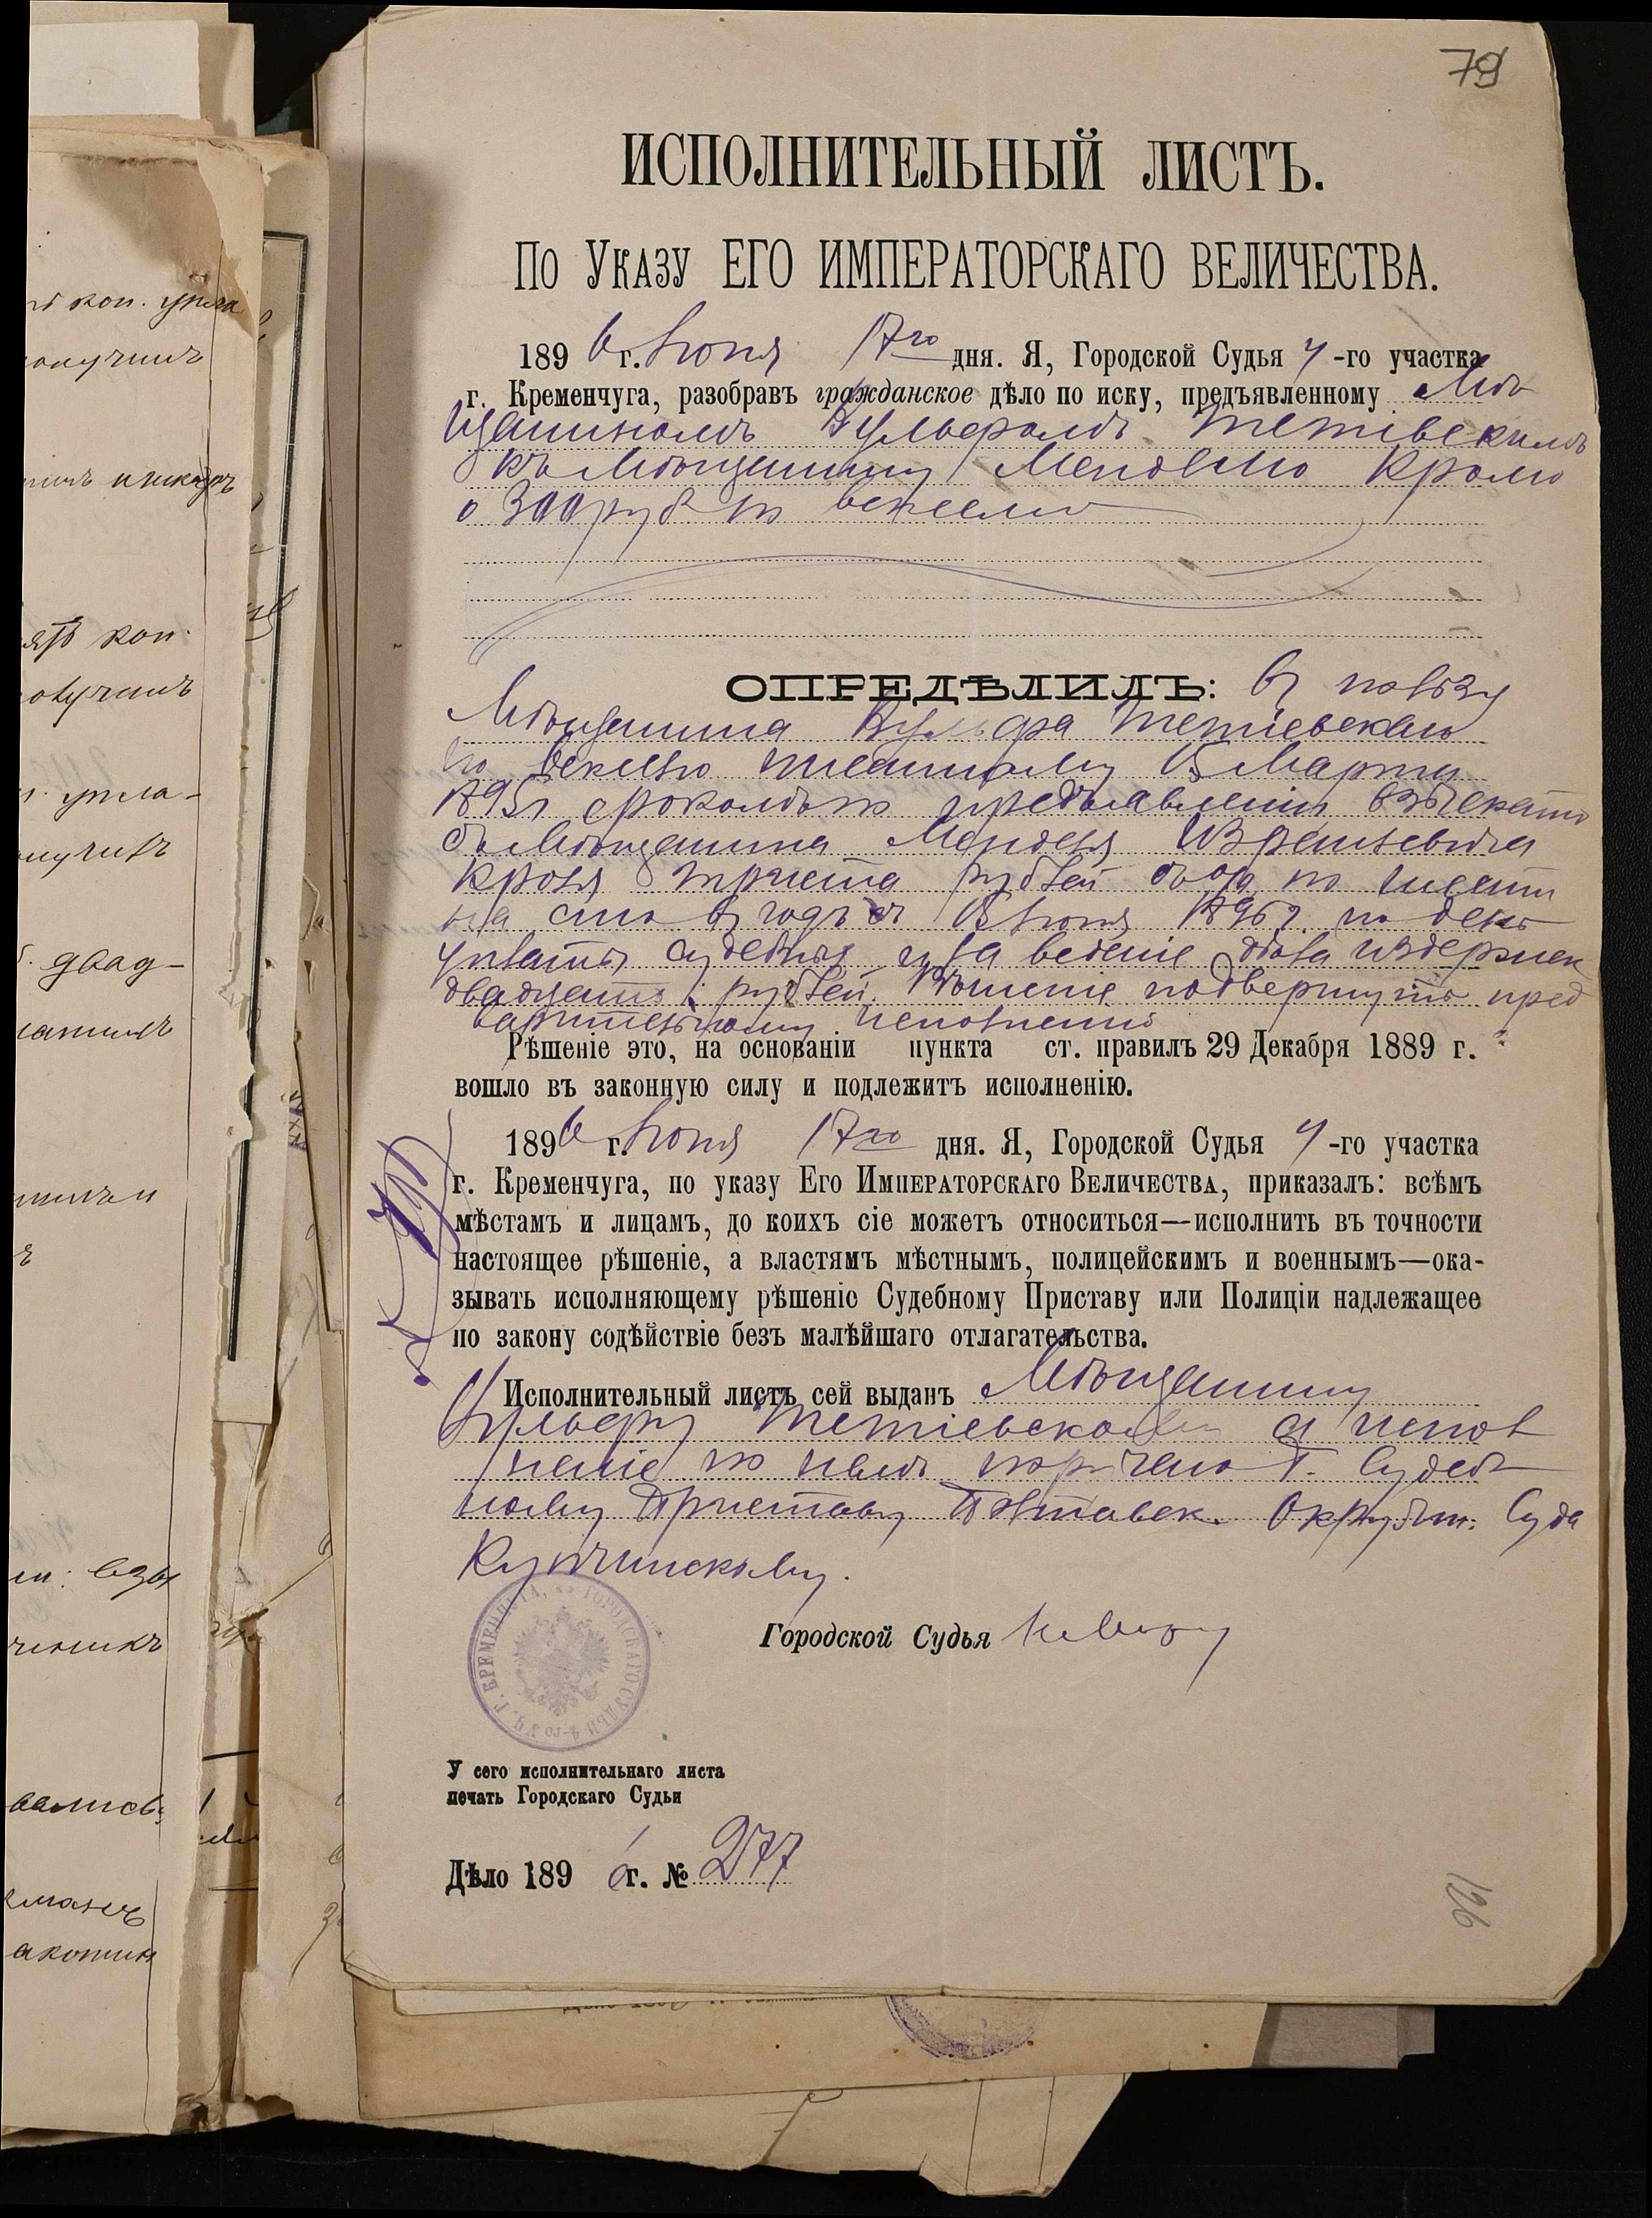 79
ИСПОЛНИТЕЛЬНЫЙ ЛИСТЪ.
По Указу ЕГО ИМПЕРАТОРСКАГО ВЕЛИЧЕСТВА.
1896 г. Iюня 17го дня. Я, Городской Судья 4-го участка
г. Кременчуга, разобравъ гражданское дѣло по иску, предъявленному Мѣ
щаниномъ Вульфомъ Тетiевскимъ
къ Мѣщанину Менделю Кролю
о 300 руб по векселю
ОПРЕДѢЛИЛЪ: въ пользу
Мѣщанина Вульфа Тетiевскаго
по векселю писанному 15 Марта
1895 г срокомъ по предъявленiи взыскать
съ Мѣщанина Менделя Израилевича
Кроля триста рублей съ % по шести
на сто въ годъ съ 15 Iюня 1896 г. по день
уплаты судебныя и за веденiе дѣла издержек
двадцать рублей. Рѣшенiе подвергнуть пред
варительному исполненiю
Рѣшеніе это, на основаніи пункта ст. правилъ 29 Декабря 1889 г.
вошло въ законную силу и подлежитъ исполненію.
1896 г. Iюня 17го дня. Я, Городской Судья 4-го участка
г. Кременчуга, по указу Его Императорскаго Величества, приказалъ: всѣмъ
мѣстамъ и лицамъ, до коихъ сіе можетъ относиться—исполнить въ точности
настоящее рѣшеніе, а властямъ мѣстнымъ, полицейскимъ и военнымъ—ока-
зывать исполняющему рѣшеніе Судебному Приставу или Полиціи надлежащее
по закону содѣйствіе безъ малѣйшаго отлагательства.
Исполнительный листъ сей выданъ Мѣщанину
Вульфу Тетiевскому а испол
ненiе по немъ поручено Г. Судеб
ному Приставу Полтавск. Окружн. Суда
Купчинскому.
Г. КРЕМЕНЧУГА, ГОРОДСКАГО СУДЬИ 4-го УЧ.
Городской Судья
У сего исполнительнаго листа
печать Городскаго Судьи
Дѣло 1896 г. № 277
126
коп. упла
получилъ
коп.
получилъ
упла-
двад-